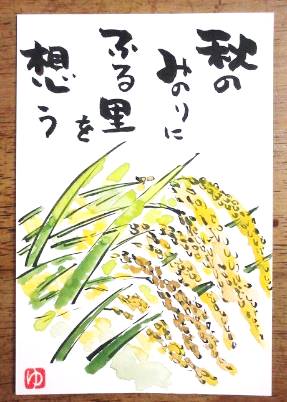 秋の
みのりに
ふる里を
想う
ゆ